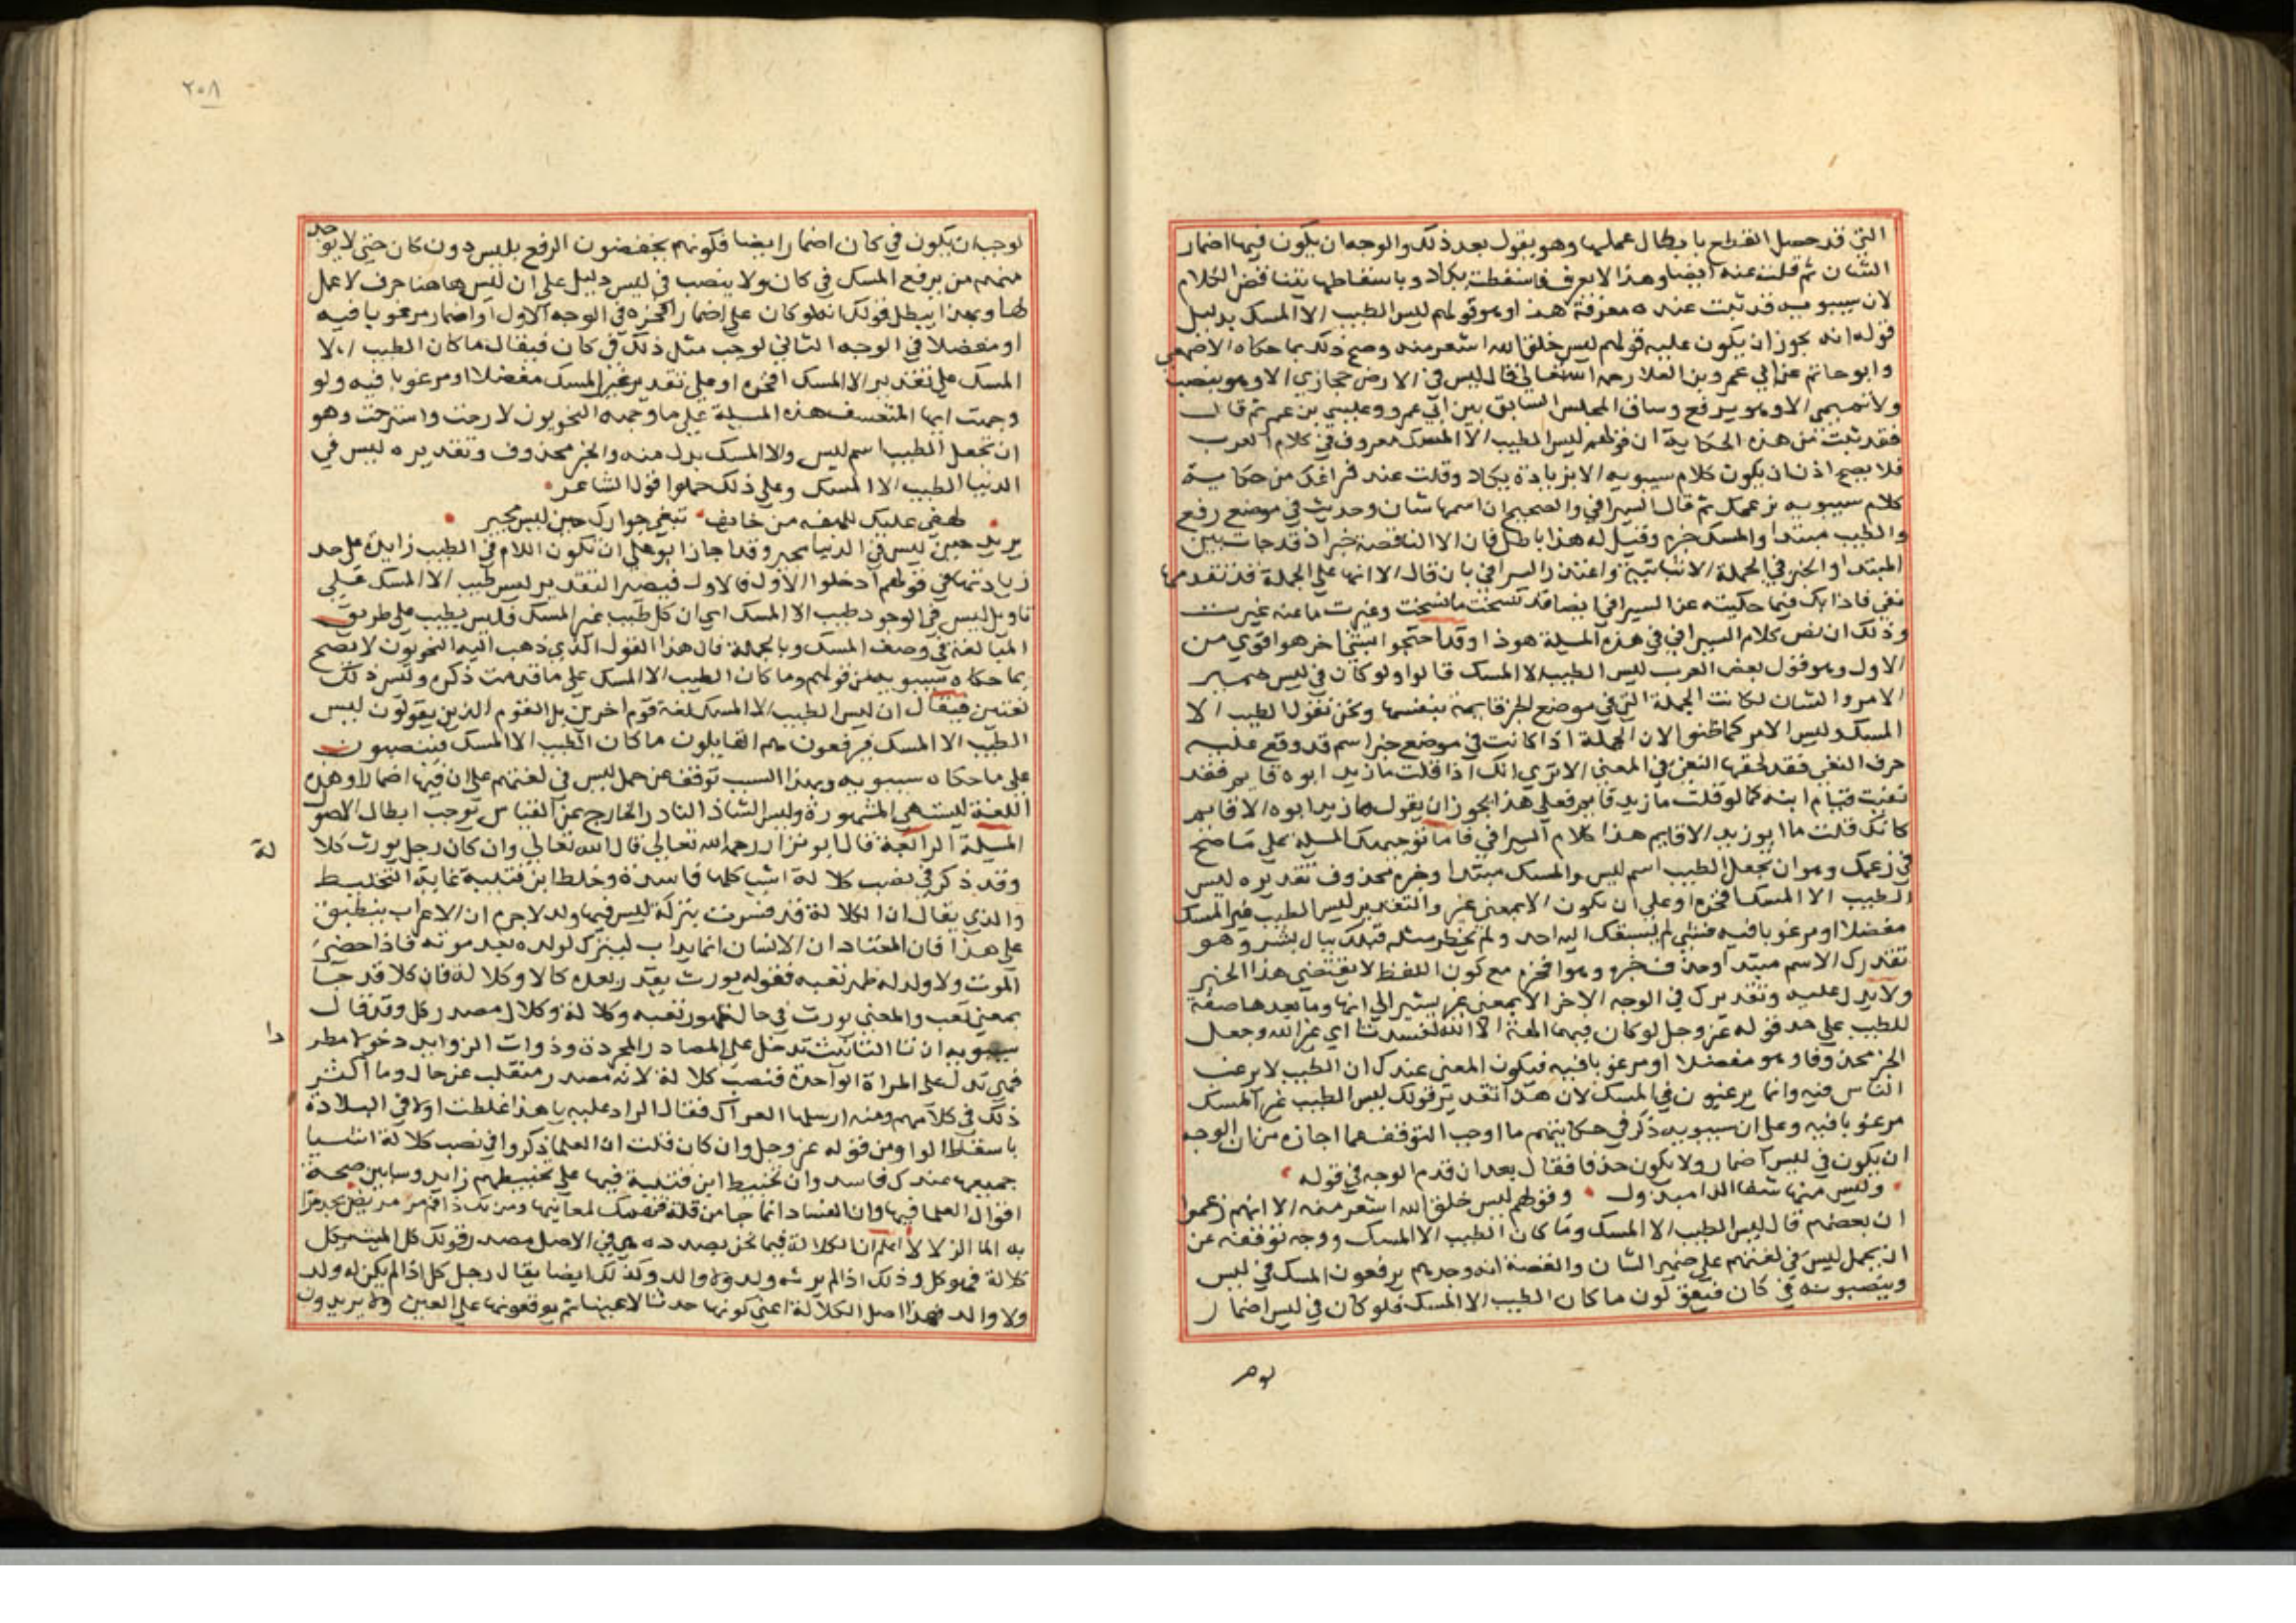 التي قد حصل القطع بابطال عملها وهو يقول بعد ذلك والوجه ان يكون فيها اضمار
الشان ثم قلت عنه ايضا وهذا لا يعرف فاسقطت يكاد وباسقاطها يتناقض الكلام
لان سيبويه قد ثبت عنده معرفة هذا وهو قولهم ليس الطيب الا المسك بدليل
قوله انه يجوز ان يكون عليه قولهم ليس خلق الله اشعر منه وصح ذلك بما حكاه الاصمعي
وابو حاتم عن ابي عمرو بن العلا رحمه الله تعالى قال ليس في الارض حجازي الا وهو ينصب
ولا تميمي الا وهو يرفع وساق المجلس السابق بين ابي عمرو وعيسى بن عمر ثم قال
فقد ثبت من هذه الحكاية ان قولهم ليس الطيب الا المسك معروف في كلام العرب
فلا يصح اذن ان يكون كلام سيبويه الا بزيادة يكاد وقلت عند فراغك من حكاية
كلام سيبويه بزعمك ثم قال السيرافي والصحيح ان اسمها شان وحديث في موضع رفع
والطيب مبتدا والمسك خبره وقيل له هذا باطل فان الا الناقصة خبر اذ قد جات بين
المبتدا والخبر في الجملة الاثباتية واعتذر السيرافي بان قال الا انها على الجملة قد تقدمها
نفي فاذا بك فيما حكيته عن السيرافي ايضا قد نسخت ما نسخت وغيرت ما عنه غيرت
وذلك ان نص كلام السيرافي في هذه المسيلة هو ذا وقد احتجوا بشي اخر هو اقوي من
الاول وهو قول بعض العرب ليس الطيب الا المسك قالوا ولو كان في ليس ضمير
الامر والشان لكانت الجملة التي في موضع الخبر قايمة بنفسها ونحن نقول الطيب الا
المسك وليس الامر كما ظنوا لان الجملة اذا كانت في موضع خبر اسم قد وقع عليه
حرف النفي فقد لحقها النفي في المعني الا تري انك اذا قلت ما زيد ابوه قايم فقد
نفيت قيام ابيه كما لو قلت ما زيد قايم فعلى هذا يجوز ان يقول ما زيد ابوه الا قايم
كانك قلت ما ابو زيد الا قايم هذا كلام السيرافي فاما توجيهك المسيلة على ما صح
في زعمك وهو ان يجعل الطيب اسم ليس والمسك مبتدا وخبره محذوف تقديره ليس
الطيب الا المسك افخره او على ان تكون الا بمعني غير والتقدير ليس الطيب غير المسك
مفضلا او مرغوبا فيه فشي لم يسبقك اليه احد ولم يخطر مثله قبلك ببال بشر وهو
تقديرك الاسم مبتدا وحذف خبره وهو افخره مع كون اللفظ لا يقتضي هذا الخبر
ولا يدل عليه وتقديرك في الوجه الاخر الا بمعني غير يشير الي انها وما بعدها صفة
للطيب على حد قوله عز وجل لو كان فيهما الهة الا الله لفسدتا اي غير الله وجعل
الخبر محذوفا وهو مفضلا او مرغوبا فيه فيكون المعني عندك ان الطيب لا يرغب
الناس فيه وانما يرغبون في المسك لان هذا تقدير قولك ليس الطيب غير المسك
مرغوبا فيه وعلى ان سيبويه ذكر في حكايتهم ما اوجب التوقف عما اجازه من ان الوجه
ان يكون في ليس اضمار ولا يكون حذفا فقال بعد ان قدم الوجه في قوله
وليس منها شفا الدا مبذول وقولهم ليس خلق الله اشعر منه الا انهم زعموا
ان بعضهم قال ليس الطيب الا المسك وما كان الطيب الا المسك ووجه توقفه عن
ان يحمل ليس في لغتهم على ضمير الشان والقصة انه وجدهم يرفعون المسك في ليس
وينصبونه في كان فيقولون ما كان الطيب الا المسك فلو كان في ليس اضمار
لوجب
٢٠٨
لوجب ان يكون في كان اضمار ايضا فكونهم يخصون الرفع بليس دون كان حتى لا يوجد
منهم من يرفع المسك في كان ولا ينصب في ليس دليل على ان ليس هاهنا حرف لا عمل
لها وبهذا يبطل قولك انه لو كان على اضمار افخره في الوجه الاول او اضمار مرغوبا فيه
او مفضلا في الوجه الثاني لوجب مثل ذلك في كان فيقال ما كان الطيب الا
المسك على تقدير الا المسك افخره او على تقدير غير المسك مفضلا او مرغوبا فيه ولو
وجهت ايها المتعسف هذه المسيلة على ما وجهه النحويون لارحت واسترحت وهو
ان تجعل الطيب اسم ليس والا المسك بدل منه والخبر محذوف وتقديره ليس في
الدنيا الطيب الا المسك وعلى ذلك حملوا قول الشاعر
لهفي عليك للهفة من خايف تبغي جوارك حين ليس مجير
يريد حين ليس في الدنيا مجير وقد اجاز ابو علي ان تكون اللام في الطيب زايدة على حد
زيادتها في قولهم ادخلوا الاول فالاول فيصير التقدير ليس طيب الا المسك على
تاويل ليس في الوجود طيب الا المسك اي ان كل طيب غير المسك فليس بطيب على طريق
المبالغة في وصف المسك وبالجملة فان هذا القول الذي ذهب اليه النحويون لا يصح
بما حكاه سيبويه من قولهم وما كان الطيب الا المسك على ما قدمت ذكره وليس ذلك
لغتين فيقال ان ليس الطيب الا المسك لغة قوم اخرين بل القوم الذين يقولون ليس
الطيب الا المسك فيرفعون هم القايلون ما كان الطيب الا المسك فينصبون
على ما حكاه سيبويه وبهذا السبب توقف عن حمل ليس في لغتهم على ان فيها اضمارا وهذه
اللغة ليست هي المشهورة وليس الشاذ النادر الخارج عن القياس يوجب ابطال الاصول
المسيلة الرابعة قال ابو نزار رحمه الله تعالى قال الله تعالى وان كان رجل يورث كلا
لة
وقد ذكر في نصب كلالة اشيا كلها فاسدة وخلط ابن قتيبة غاية التخليط
والذي يقال ان الكلالة قد فسرت بتركة ليس فيها ولد لاجرم ان الاعراب ينطبق
على هذا فان المعتاد ان الانسان انما يداب ليترك لولده بعد موته فاذا حضره
الموت ولا ولد له ظهر تعبه فقوله يورث يقدر بعده كالا وكلالة فان كلا قد جا
بمعني تعب والمعني يورث في حال ظهور تعبه وكلالة وكلال مصدر كل وقد قال
سيبويه ان تا التانيث تدخل على المصادر المجردة وذوات الزوايد دخولا مطر
دا
فهي تدل على المراة الواحدة فنصب كلالة لانه مصدر منقلب عن حال وما اكثر
ذلك في كلامهم ومنه ارسلها العراك فقال الراد عليه يا هذا غلطت اولا في التلاوة
باسقاط الواو من قوله عز وجل وان كان قلت ان العلما ذكروا في نصب كلالة اشيا
جميعها عندك فاسد وان تخليط ابن قتيبة فيها على تخبيطهم زايد وسابين صحة
اقوال العلما فيها وان الفساد انما جا من قلة فهمك لمعانيها ومن يك ذا فم مر مريض يجد مرا
به الما الزلالا اعلم ان الكلالة فيما نحن بصدده هي في الاصل مصدر قولك كل الميت يكل
كلالة فهو كل وذلك اذا لم يرثه ولد ولا والد وكذلك ايضا يقال رجل كل اذا لم يكن له ولد
ولا والد فهذا اصل الكلالة اعني كونها حدثا لا عينا ثم يوقعونها على العين ولا يريدون